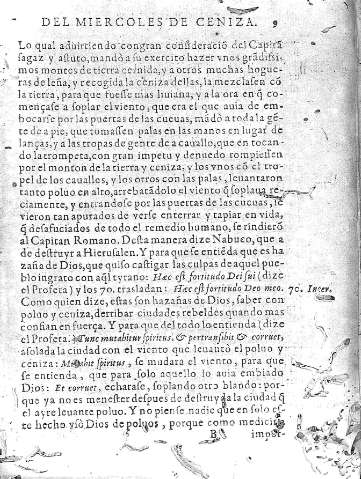 DEL MIERCOLES DE CENIZA. 9
Lo qual aduirtiendo con gran consideració del Capitã
sagaz y astuto, mandò a su exercito hazer vnos grãdissi-
mos montes de tierra cernida, y a otros muchas hogue-
ras de leña, y recogida la ceniza dellas, la mezclasen cõ
la tierra, para que fuesse mas liuiana, y a la ora en q̃ co-
mençase a soplar el viento, que era el que auia de em-
bocarse por las puertas de las cueuas, mãdò a toda la gẽ
te de a pie, que tomassen palas en las manos en lugar de
lanças, y a las tropas de gente de a cauallo, que en tocan-
do la trompeta, con gran impetu y denuedo rompiessen
por el monton de la tierra y ceniza, y los vnos cõ el tro-
pel de los cauallos, y los otros con las palas, leuantaron
tanto poluo en alto, arrebatãdolo el viento q̃ soplaua re-
ciamente, y entrandose por las puertas de las cueuas, se
vieron tan apurados de verse enterrar y tapiar en vida,
q̃ desafuciados de todo el remedio humano, se rindierõ
al Capitan Romano. Desta manera dize Nabuco, que a
de destruyr a Hierusalen. Y para q̃ se entiẽda que es ha
zaña de Dios, que quiso castigar las culpas de aquel pue-
blo ingrato con aq̃l tyrano: Hæc est fortitudo Dei sui (dize
el Profeta) y los 70. trasladan: Hæc est fortitudo Deo meo. 70. Inter.
Como quien dize, estas son hazañas de Dios, saber con
poluo y ceniza, derribar ciudades rebeldes quando mas
confian en su fuerça. Y para que del todo lo entienda (dize
el Profeta. Tunc mutabitur spiritus, & pertransibit & corruet,
asolada la ciudad con el viento que leuantò el poluo y
ceniza: Mutabit spiritus, se mudara el viento, para que
se entienda, que para solo aquello lo auia embiado
Dios: Et corruet, echarase, soplando otro blando: por-
que ya no es menester despues de destruyda la ciudad q̃
el ayre leuante poluo. Y no piense nadie que en solo es-
te hecho vsò Dios de poluos, porque como medicin
B impor-